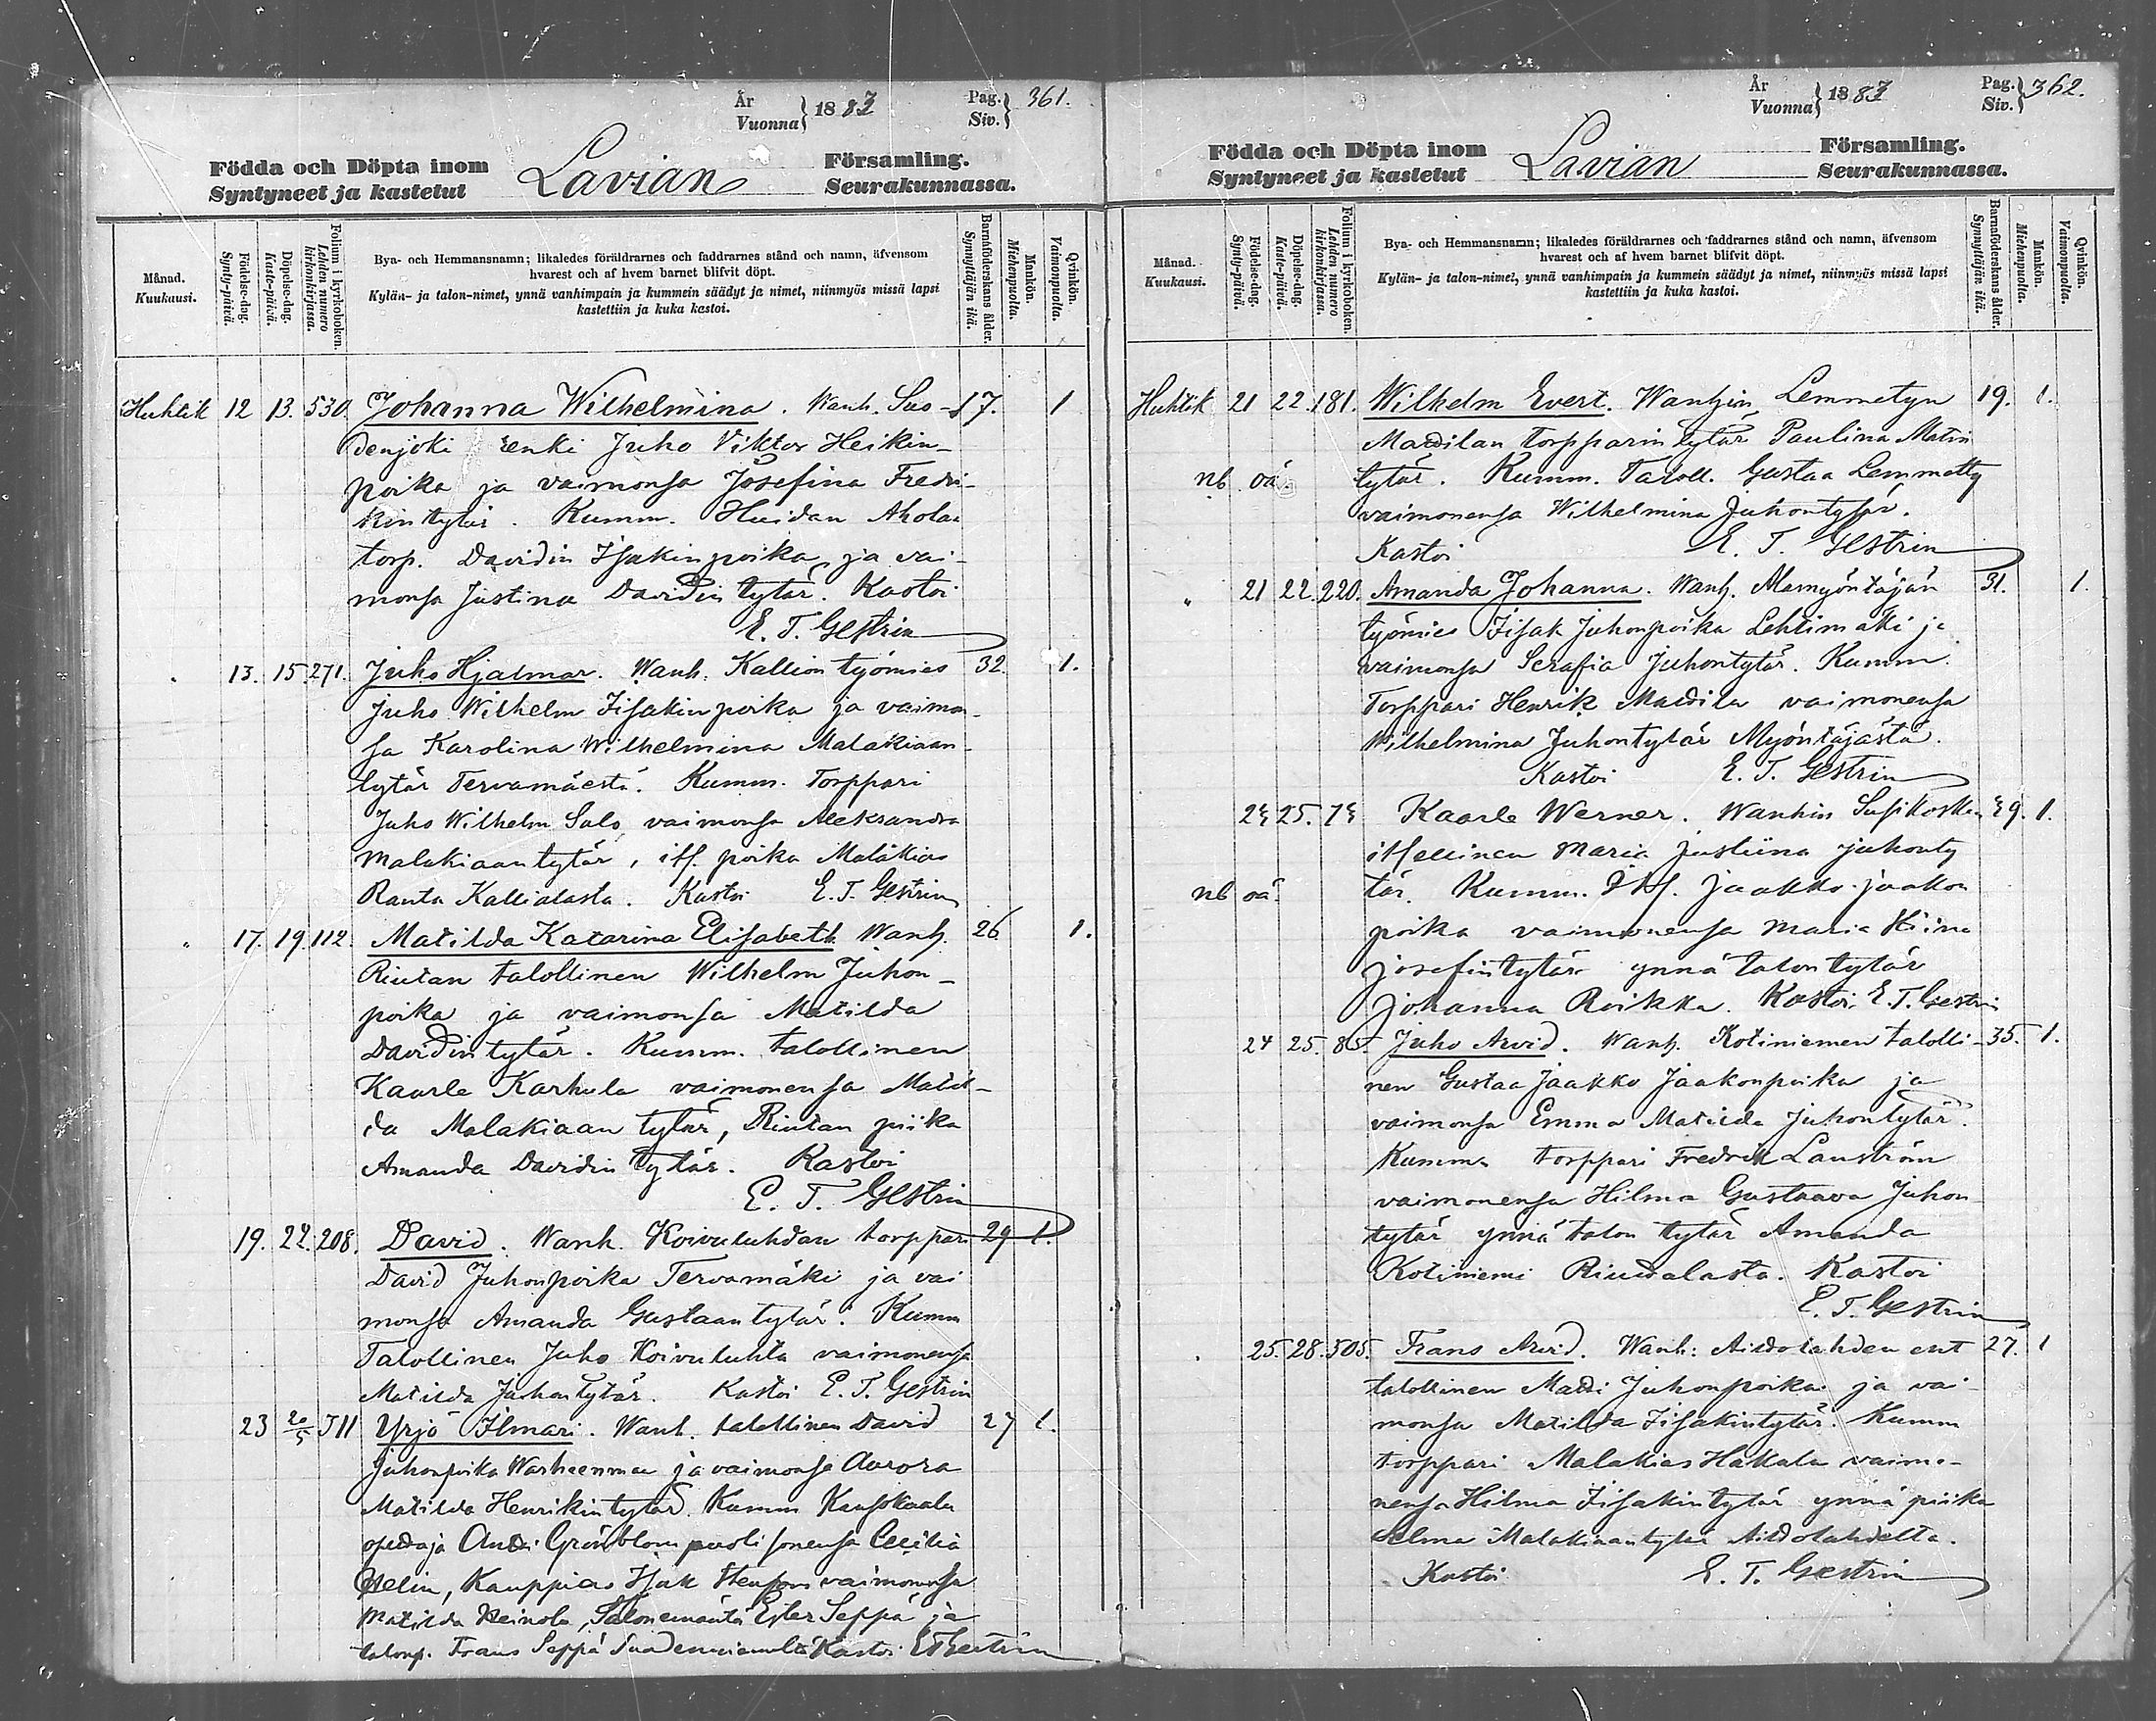 År
Vuonna } 1883
Pag.
Siv. } 361.
Födda och Döpta inom
Syntyneet ja kastetut
Lavian
Församling.
Seurakunnassa.
Månad.
Kuukausi.
Födelse-dag.
Synty-päivä.
Döpelse-dag.
Kaste-päivä.
Folium i kyrkoboken.
Lehden numero kirkonkirjassa.
Bya- och Hemmansnamn; likaledes föräldrarnes och faddrarnes stånd och namn, äfvensom
hvarest och af hvem barnet blifvit döpt.
Kylän- ja talon-nimet, ynnä vanhimpain ja kummein säädyt ja nimet, niinmyös missä lapsi
kastettiin ja kuka kastoi.
Barnaföderskans ålder.
Synnyttäjän ikä.
Mankön.
Miehenpuolta.
Qvinkön.
Vaimonpuolta.
Huhtik 12 13. 530. Johanna Wilhelmina. Wanh. Suo- 17. 1
denjoki renki Juho Viktor Heikin-
poika ja vaimonsa Josefina Fredri-
kintytär. Kumm. Huidan Ahola
torp. Davidin Isakinpoika ja vai-
monsa Justina Davidin tytär. Kastoi
E. T. Gestrin
" 13. 15. 271. Juho Hjalmar. Wanh. Kallion työmies 32. 1.
Juho Wilhelm Iisakinpoika ja vaimon-
sa Karolina Wilhelmina Malakiaan-
tytär Tervamäestä. Kumm. Torppari
Juho Wilhelm Salo, vaimonsa Aleksandra
Malakiaantytär, its. poika Malakias
Ranta Kallialasta. Kastoi E. T. Gestrin
" 17. 19. 112. Matilda Katarina Elisabeth. Wanh. 26 1.
Riutan talollinen Wilhelm Juhon-
poika ja vaimonsa Matilda
Davidintytär. Kumm. talollinen
Kaarle Karhula vaimonensa Matil-
da Malakiaan tytär, Riutan piika
Amanda Davidin tytär. Kastoi
E. T. Gestrin
19. 22. 208. David. Wanh. Koivuluhdan torppari 29 1.
David Juhonpoika Tervamäki ja vai
monsa Amanda Gustaantytär. Kumm
Talollinen Juho Koivuluhta vaimonensa
Matilda Juhontytär. Kastoi E. T. Gestrin
23 20/5 511 Yrjö Ilmari. Wanh. talollinen David 27 1.
Juhonpoika Warheenmaa ja vaimonsa Aurora
Matilda Henrikintytär. Kumm Kansakoulu
opettaja Antti Grönblom puolisonensa Cecilia
Helin, Kauppias Isak Stenfors vaimonensa
Matilda Heinola, Talonemäntä Ester Seppä ja
talonp. Frans Seppä Suodenniemeltä Kastoi E T Gestrin
År
Vuonna } 1883
Pag.
Siv. } 362.
Födda och Döpta inom
Syntyneet ja kastetut
Lavian
Församling.
Seurakunnassa.
Månad.
Kuukausi.
Födelse-dag.
Synty-päivä.
Döpelse-dag.
Kaste-päivä.
Folium i kyrkoboken.
Lehden numero kirkonkirjassa.
Bya- och Hemmansnamn; likaledes föräldrarnes och faddrarnes stånd och namn, äfvensom
hvarest och af hvem barnet blifvit döpt.
Kylän- ja talon-nimet, ynnä vanhimpain ja kummein säädyt ja nimet, niinmyös missä lapsi
kastettiin ja kuka kastoi.
Barnaföderskans ålder.
Synnyttäjän ikä.
Mankön.
Miehenpuolta.
Qvinkön.
Vaimonpuolta.
Huhtik 21 22. 181. Wilhelm Evert. Wanhin Lemmetyn 19. 1.
Mattilan torpparin tytär Paulina Matin
nb oä. tytär. Kumm. Taloll. Gustaa Lemmetty
vaimonensa Wilhelmina Juhontytär.
Kastoi E. T. Gestrin
" 21 22. 220. Amanda Johanna. Wanh. Alamyöntäjän 31. 1.
työmies Iisak Juhonpoika Lehtimäki ja
vaimonsa Serafia Juhontytär. Kumm.
Torppari Henrik Mattila vaimonensa
Wilhelmina Juhontytär Myöntäjästä.
Kastoi E. T. Gestrin
24 25. 74 Kaarle Werner. Wanhin Susikosken 49. 1.
itsellinen Maria Justiina Juhonty
nb oä. tär. Kumm. Itts. Jaakko Jaakon
poika vaimonensa Maria Stiina
Josefintytär ynnä talon tytär
Johanna Roikka. Kastoi E. T. Gestrin
24 25. 85. Juho Arvid. Wanh. Kotiniemen talolli- 35. 1.
nen Gustaa Jaakko Jaakonpoika ja
vaimonsa Emma Matilda Juhontytär.
Kumma torppari Fredrik Lanström
vaimonensa Hilma Gustaava Juhon
tytär ynnä talon tytär Amanda
Kotiniemi Riuttalasta. Kastoi
E. T. Gestrin
25. 28. 505. Frans Arvid. Wanh: Aittolahden ent 27. 1
talollinen Matti Juhonpoika ja vai-
monsa Matilda Iisakintytär. Kumm
torppari Malakias Hakala vaimo-
nensa Hilma Iisakintytär ynnä piika
Selma Malakiaantytär Aittolahdelta.
Kastoi E. T. Gestrin